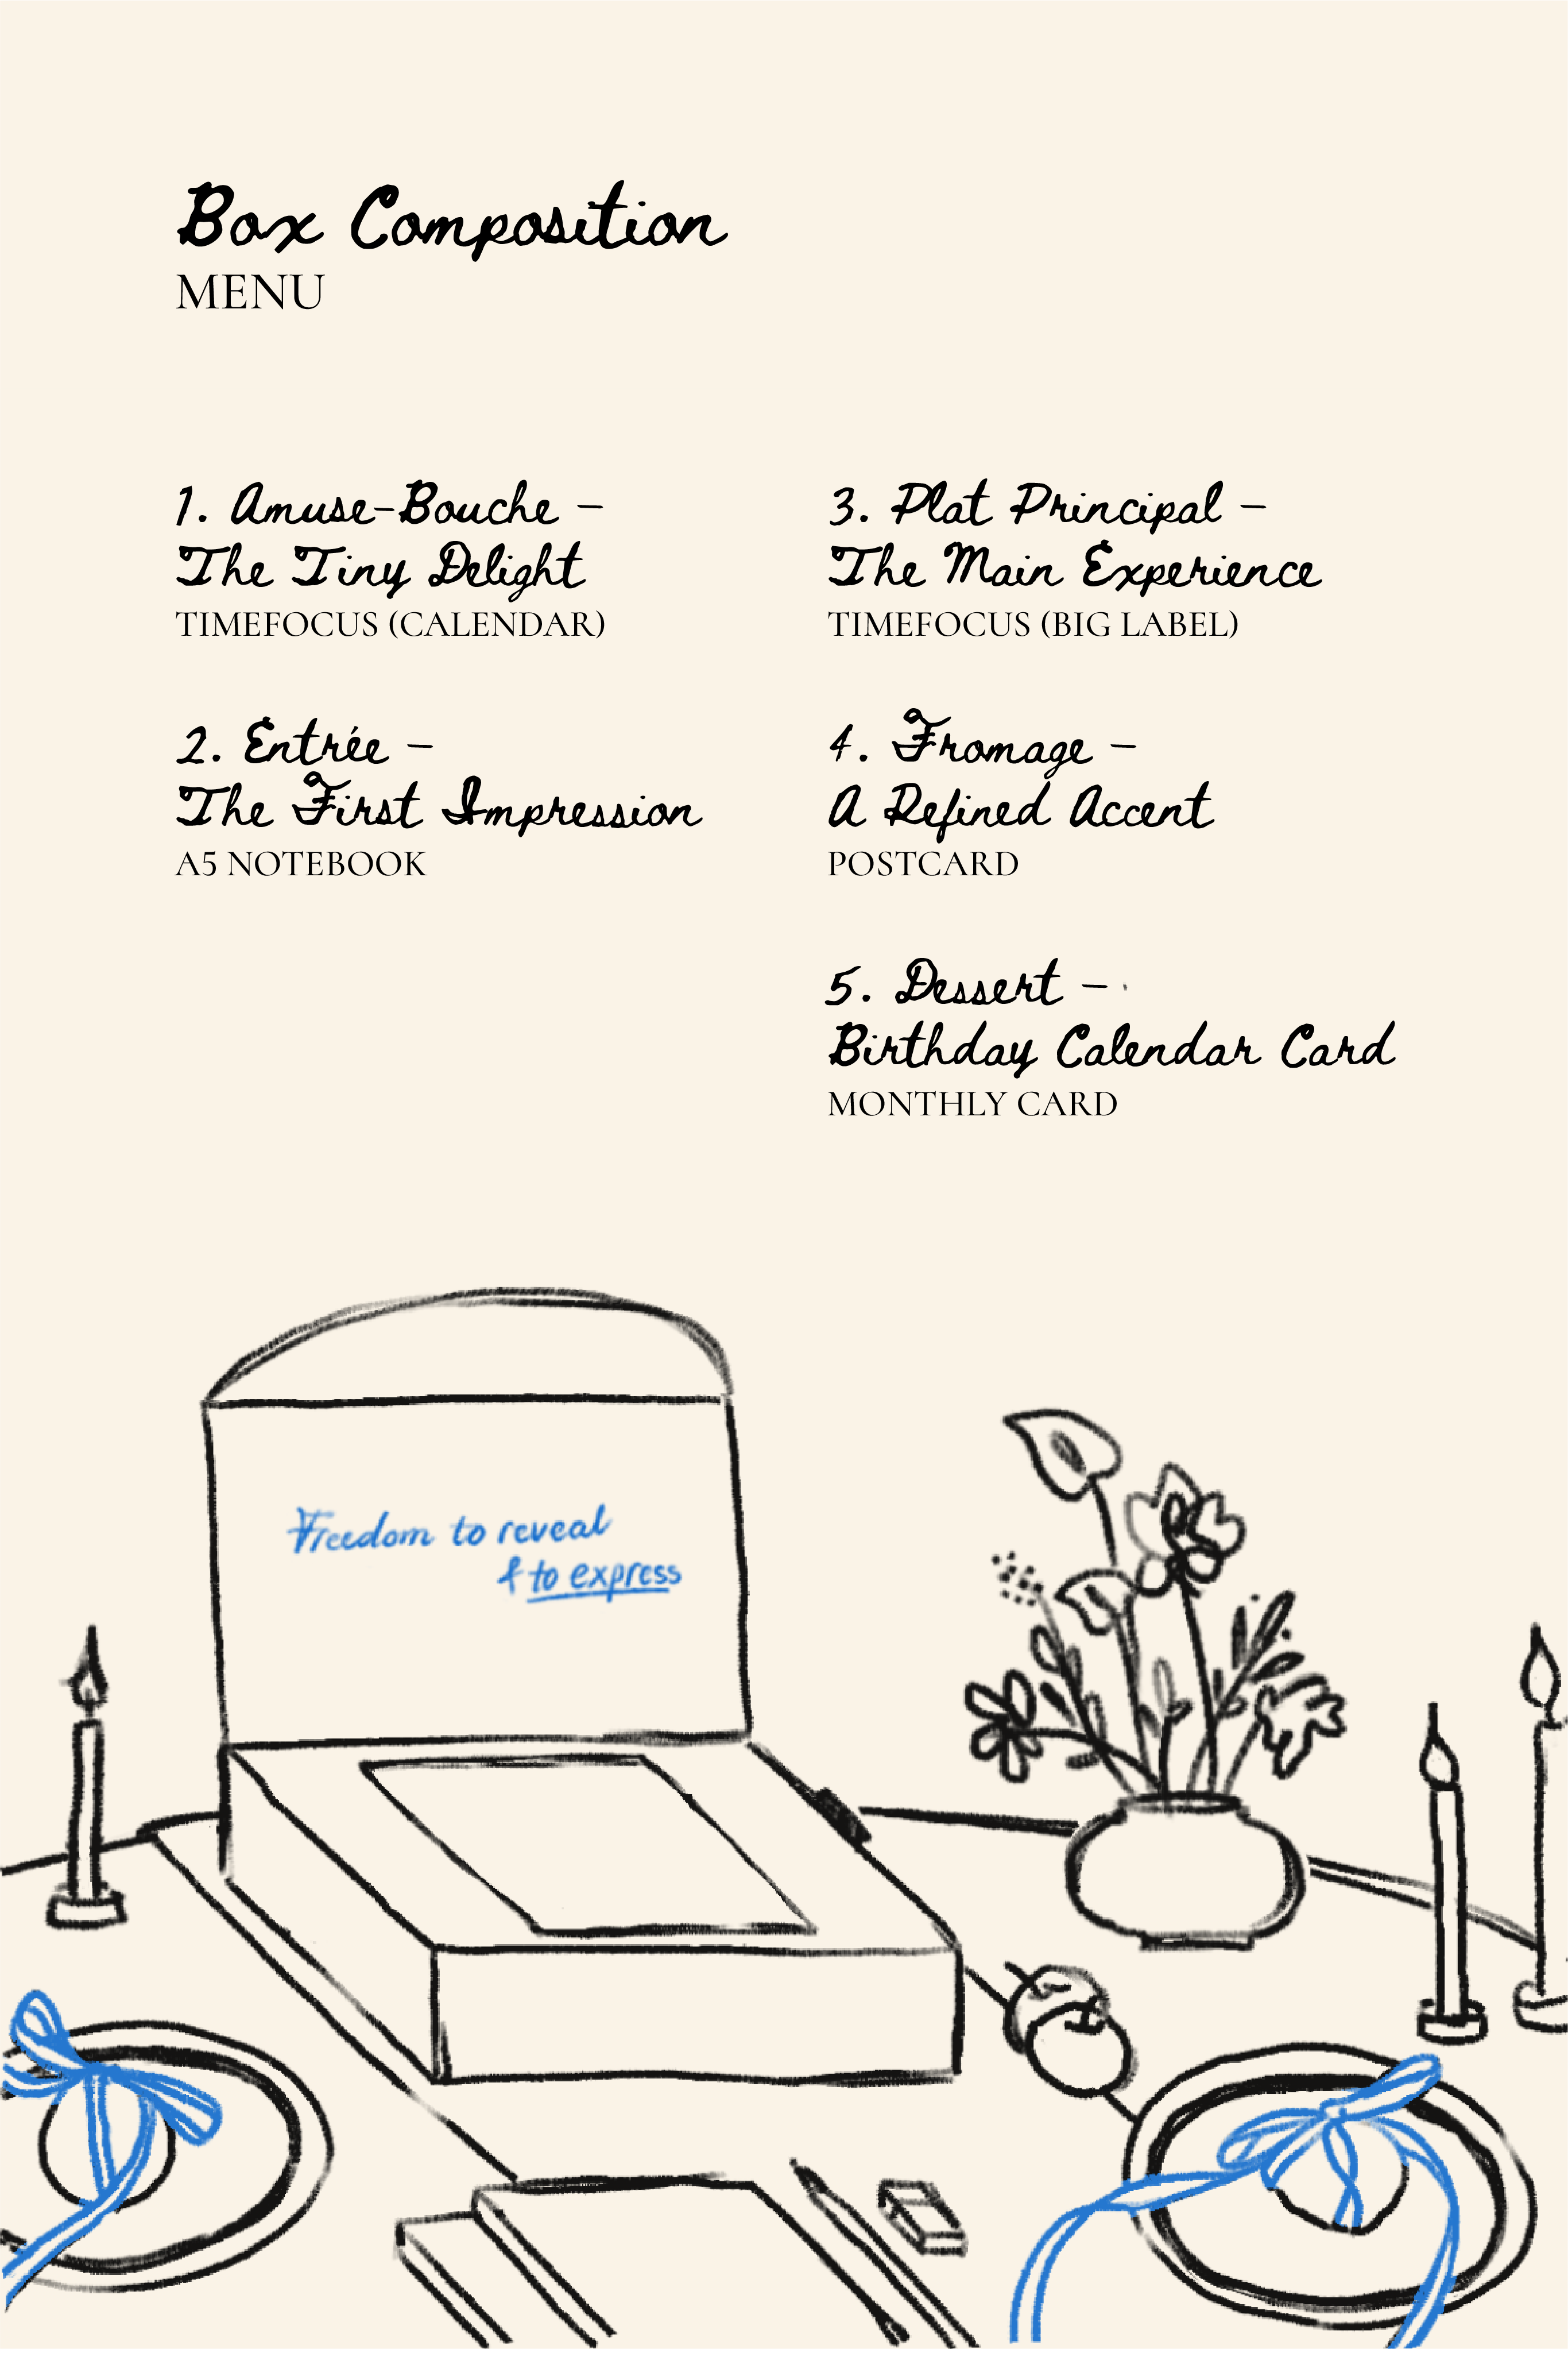 Box Composition
MENU
1. Amuse-Bouche –
The Tiny Delight
TIMEFOCUS (CALENDAR)
2. Entrée –
The First Impression
A5 NOTEBOOK
3. Plat Principal –
The Main Experience
TIMEFOCUS (BIG LABEL)
4. Fromage –
A Refined Accent
POSTCARD
5. Dessert –
Birthday Calendar Card
MONTHLY CARD
Freedom to reveal
& to express